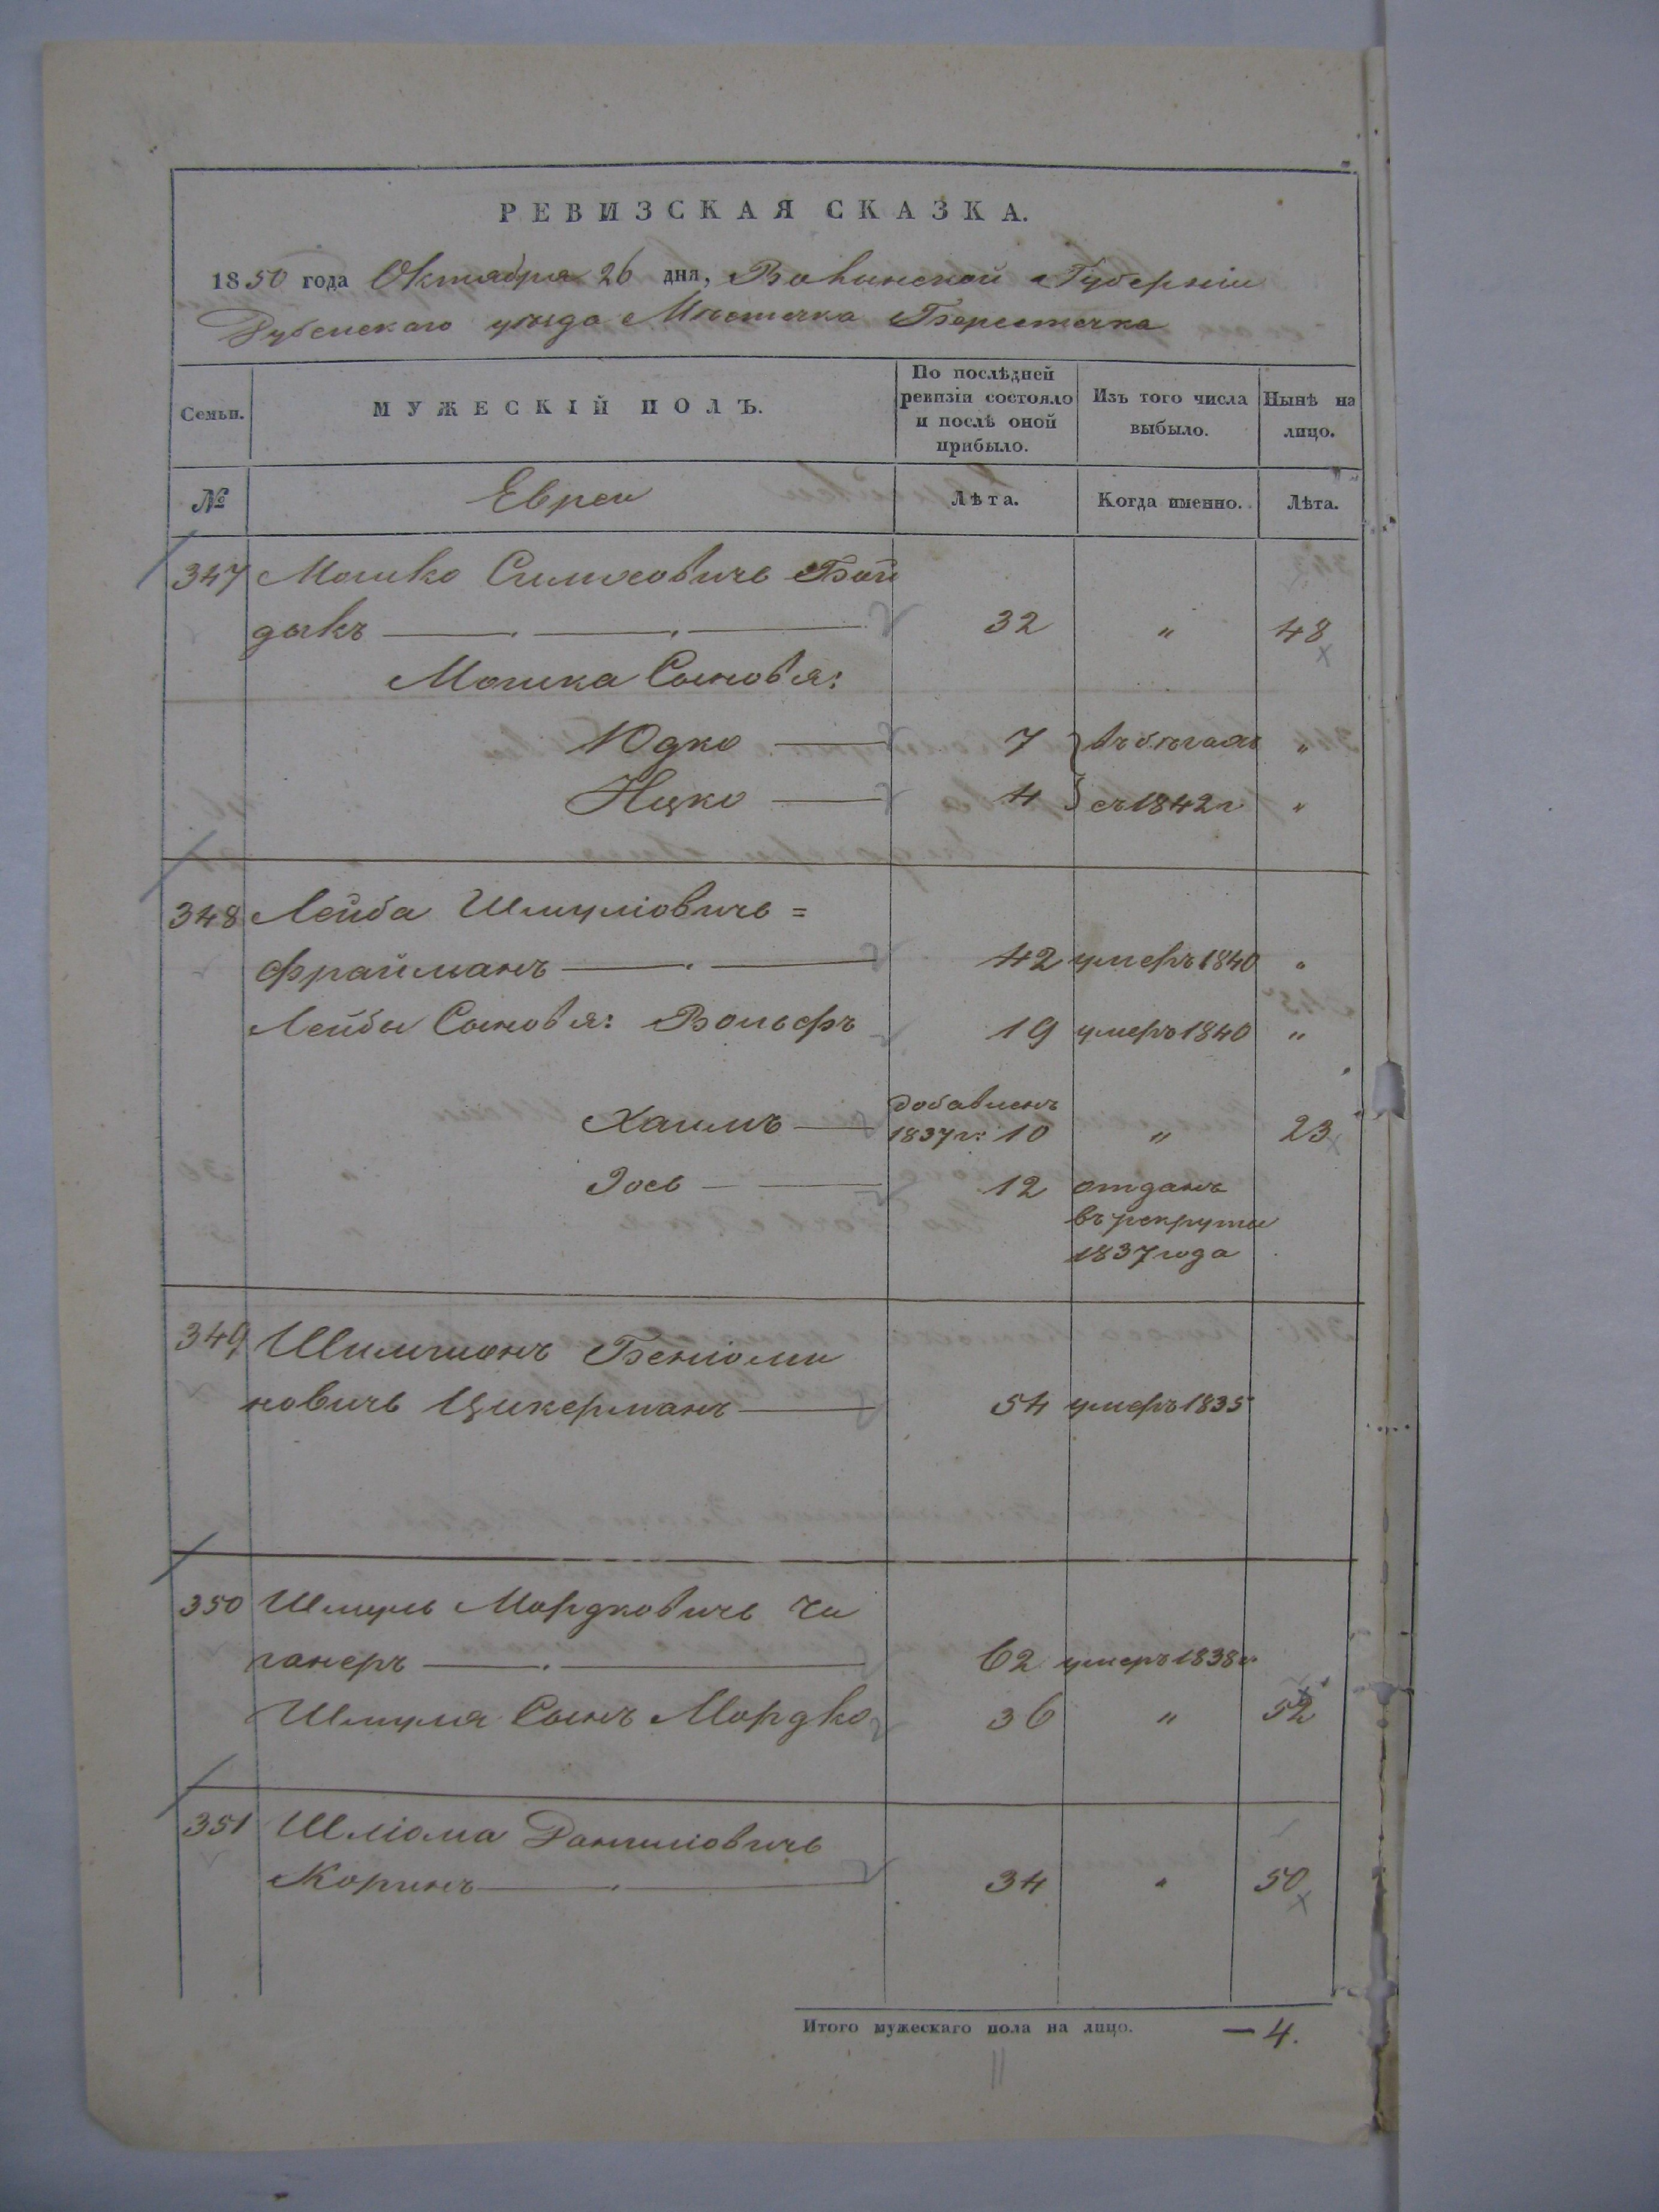 РЕВИЗСКАЯ СКАЗКА.
1850 года Октября 26 дня, Волынской Губерніи
Дубенскаго уѣзда Мѣстечка Берестечка
Семьи.
МУЖЕСКІЙ ПОЛЪ.
По послѣдней
ревизіи состояло
и послѣ оной
прибыло.
Изъ того числа
выбыло.
Нынѣ на
лицо.
№ Евреи Лѣта. Когда именно. Лѣта.
347 Мошко Симховичь Бой
дыкъ 32 " 48
Мошка Сыновья:
Юдко 7 въ бѣгахъ "
Ицко 4 съ 1842 г "
348 Лейба Шмуліовичь =
Фрайманъ 42 умеръ 1840 "
Лейбы Сыновья: Вольфъ 19 умеръ 1840 "
Хаимъ добавленъ
1837 г: 10 " 23
Іось 12 отданъ
въ рекруты
1837 года
349 Шимшонъ Беніоми
новичь Цикерманъ 54 умеръ 1835
350 Шмуль Мордковичь Чи
ганеръ 62 умеръ 1838 г.
Шмуля Сынъ Мордко 36 " 52
351 Шліома Даниліовичь
Коринъ 34 " 50
Итого мужескаго пола на лицо. — 4.